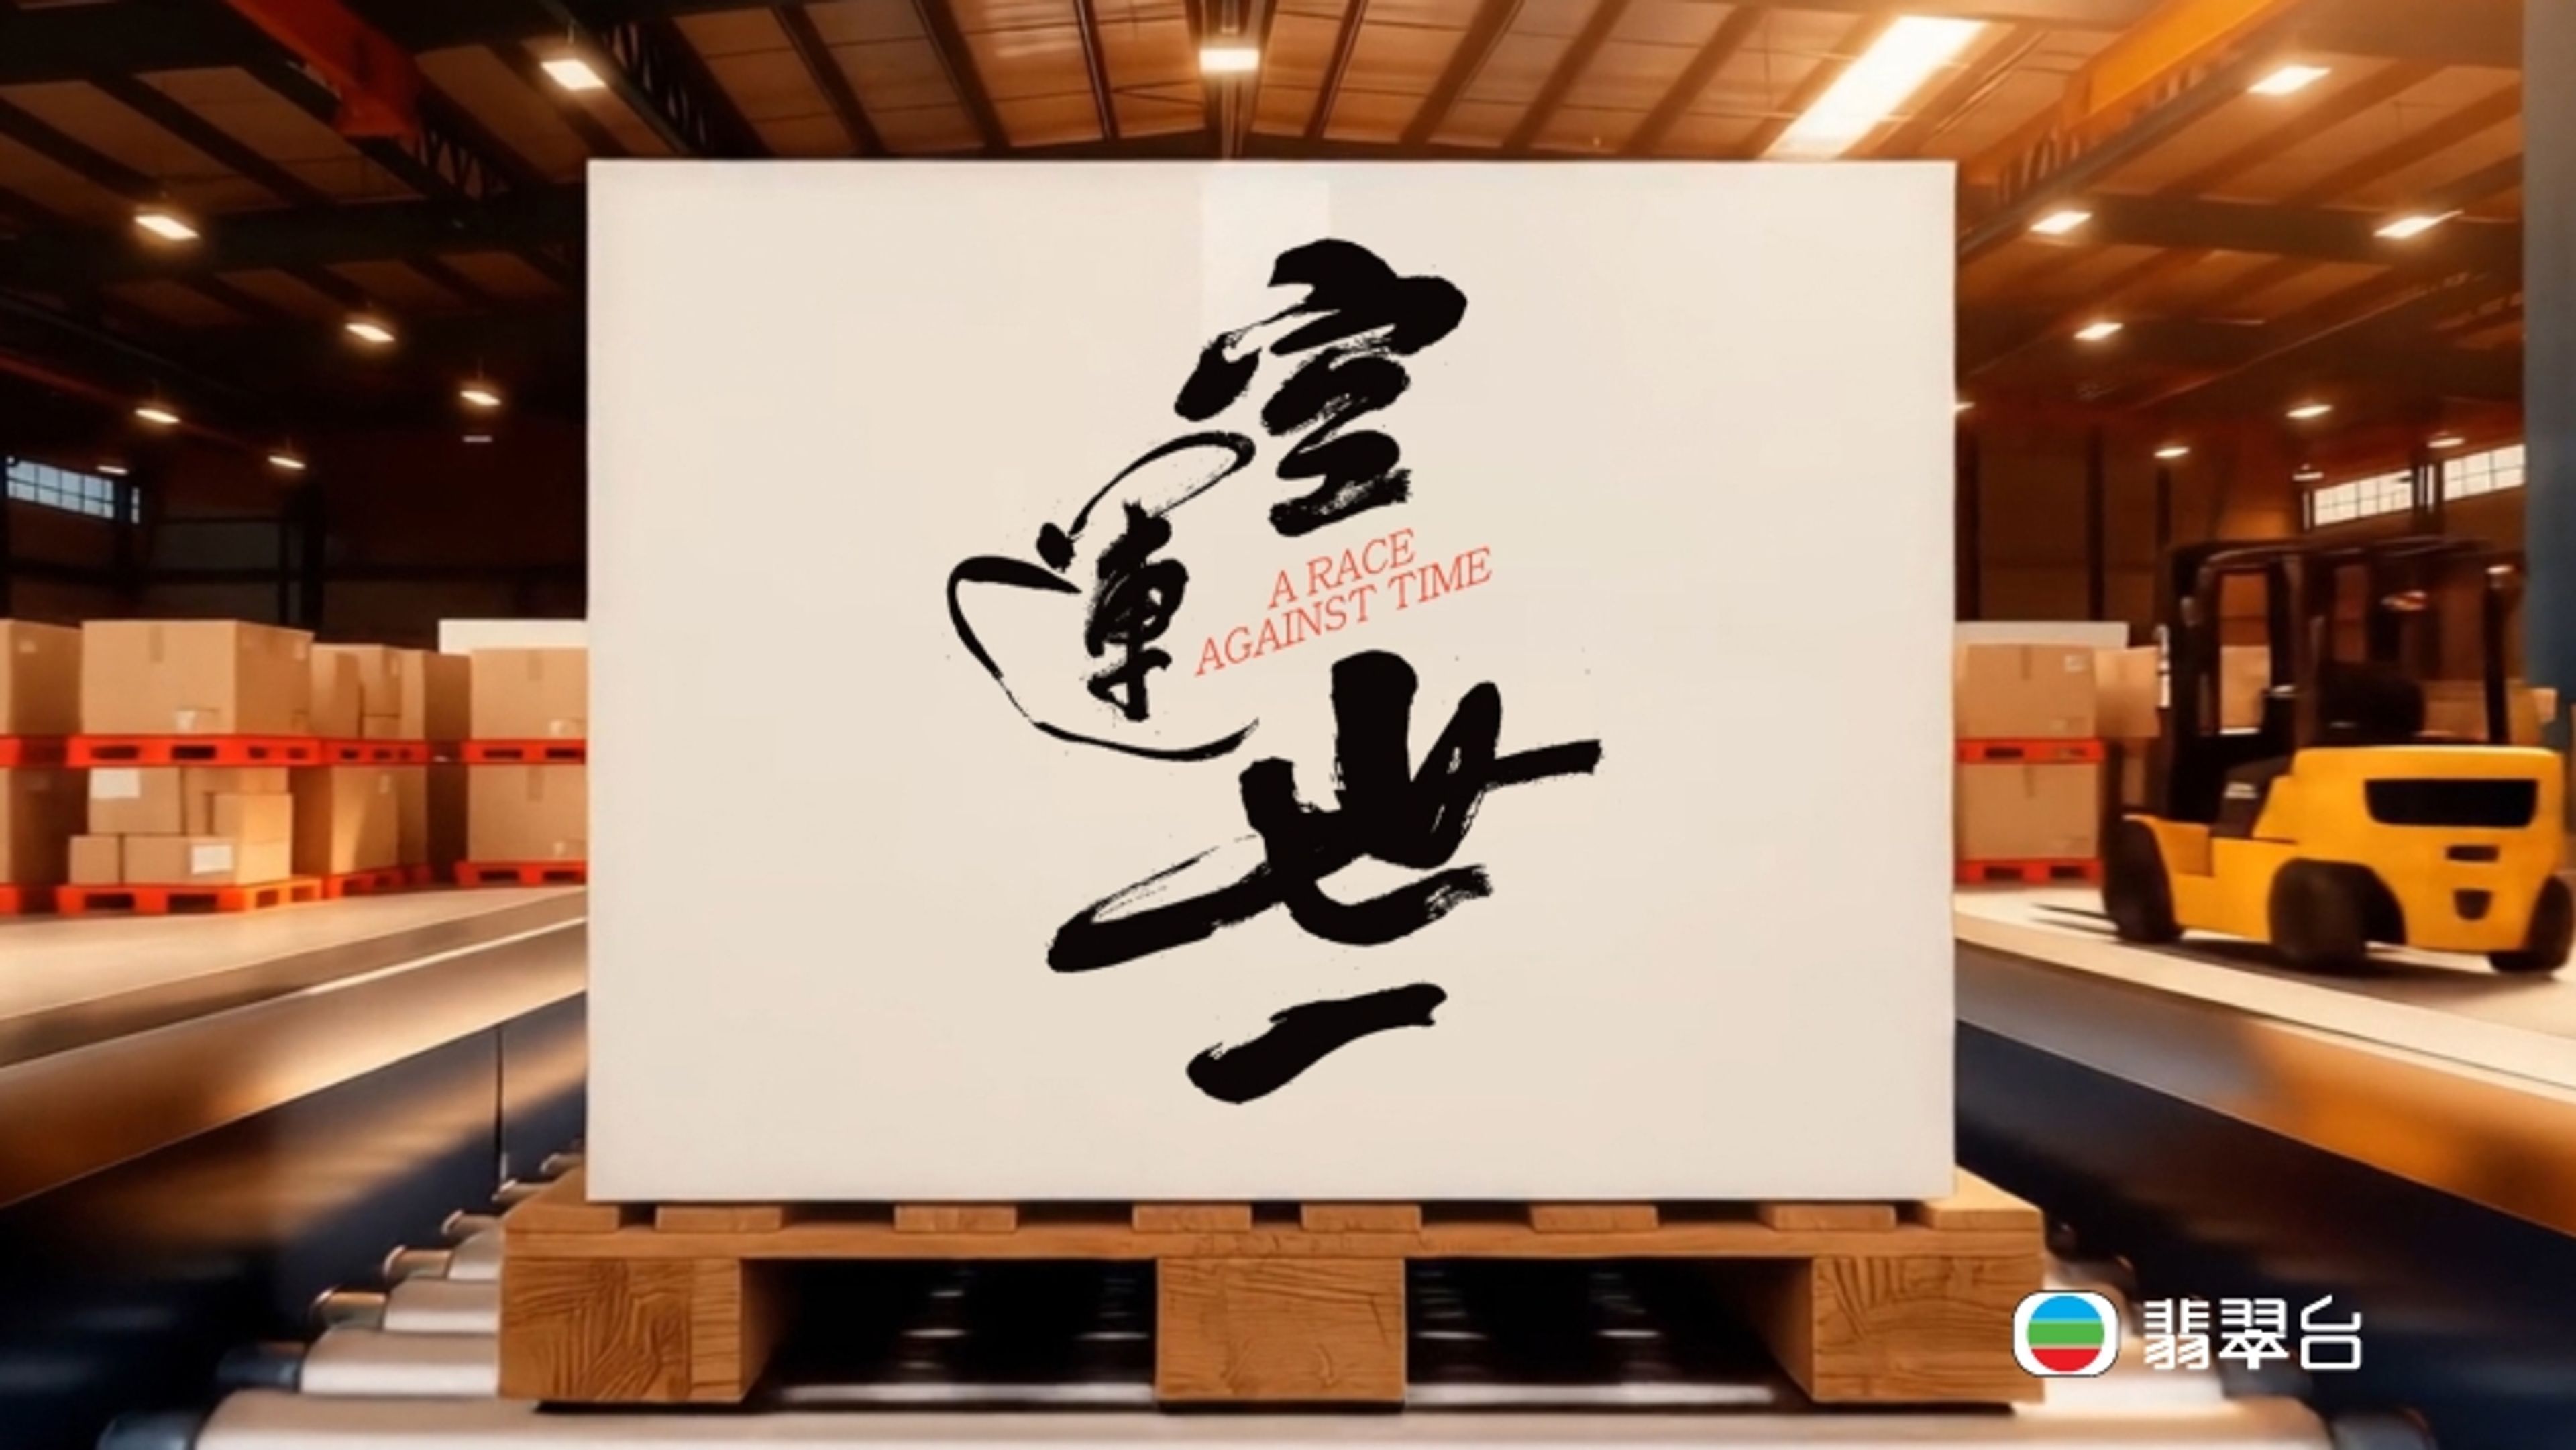 空
運
A RACE
AGAINST TIME
世
一
翡翠台